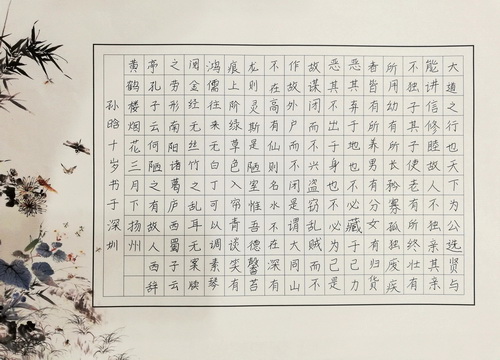 大道之行也天下为公选贤与
能讲信修睦故人不独亲其亲
不独子其子使老有所终壮有
所用幼有所长矜寡孤独废疾
者皆有所养男有分女有归货
恶其弃于地也不必藏于己力
恶其不出于身也不必为己是
故谋闭而不兴盗窃乱贼而不
作故外户而不闭是谓大同山
不在高有仙则名水不在深有
龙则灵斯是陋室惟吾德馨苔
痕上阶绿草色入帘青谈笑有
鸿儒往来无白丁可以调素琴
阅金经无丝竹之乱耳无案牍
之劳形南阳诸葛庐西蜀子云
亭孔子云何陋之有故人西辞
黄鹤楼烟花三月下扬州
孙晗十岁书于深圳